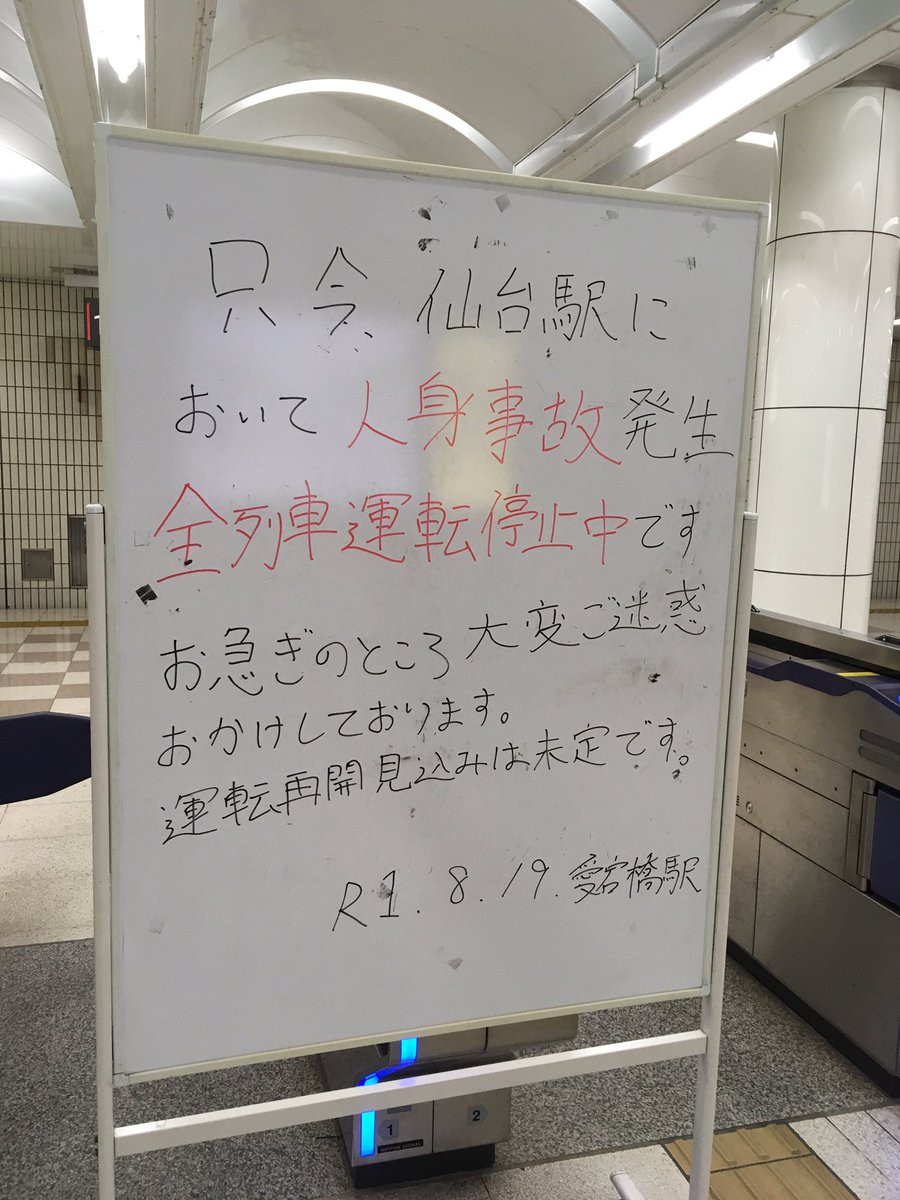 只今、仙台駅に
おいて人身事故発生
全列車運転停止中です
お急ぎのところ大変ご迷惑
おかけしております。
運転再開見込みは未定です。
R1.8.19.愛宕橋駅
1
2